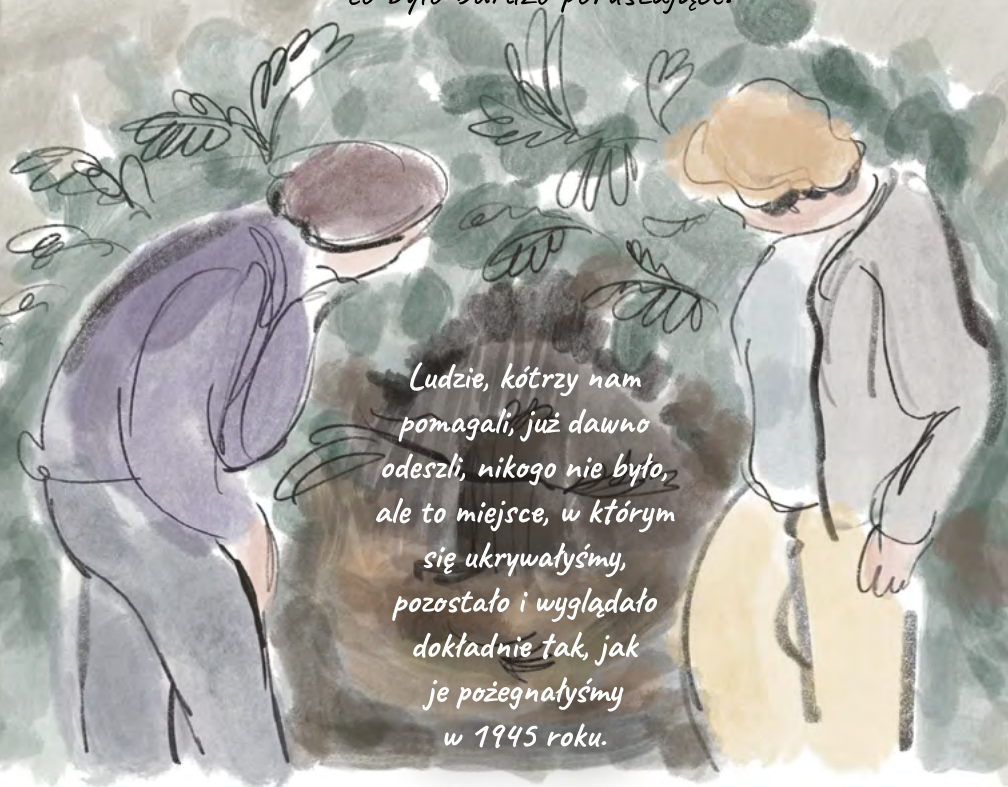 to było bardzo poruszające.
Ludzie, kótrzy nam
pomagali, już dawno
odeszli, nikogo nie było,
ale to miejsce, w którym
się ukrywałyśmy,
pozostało i wyglądało
dokładnie tak, jak
je pożegnałyśmy
w 1945 roku.